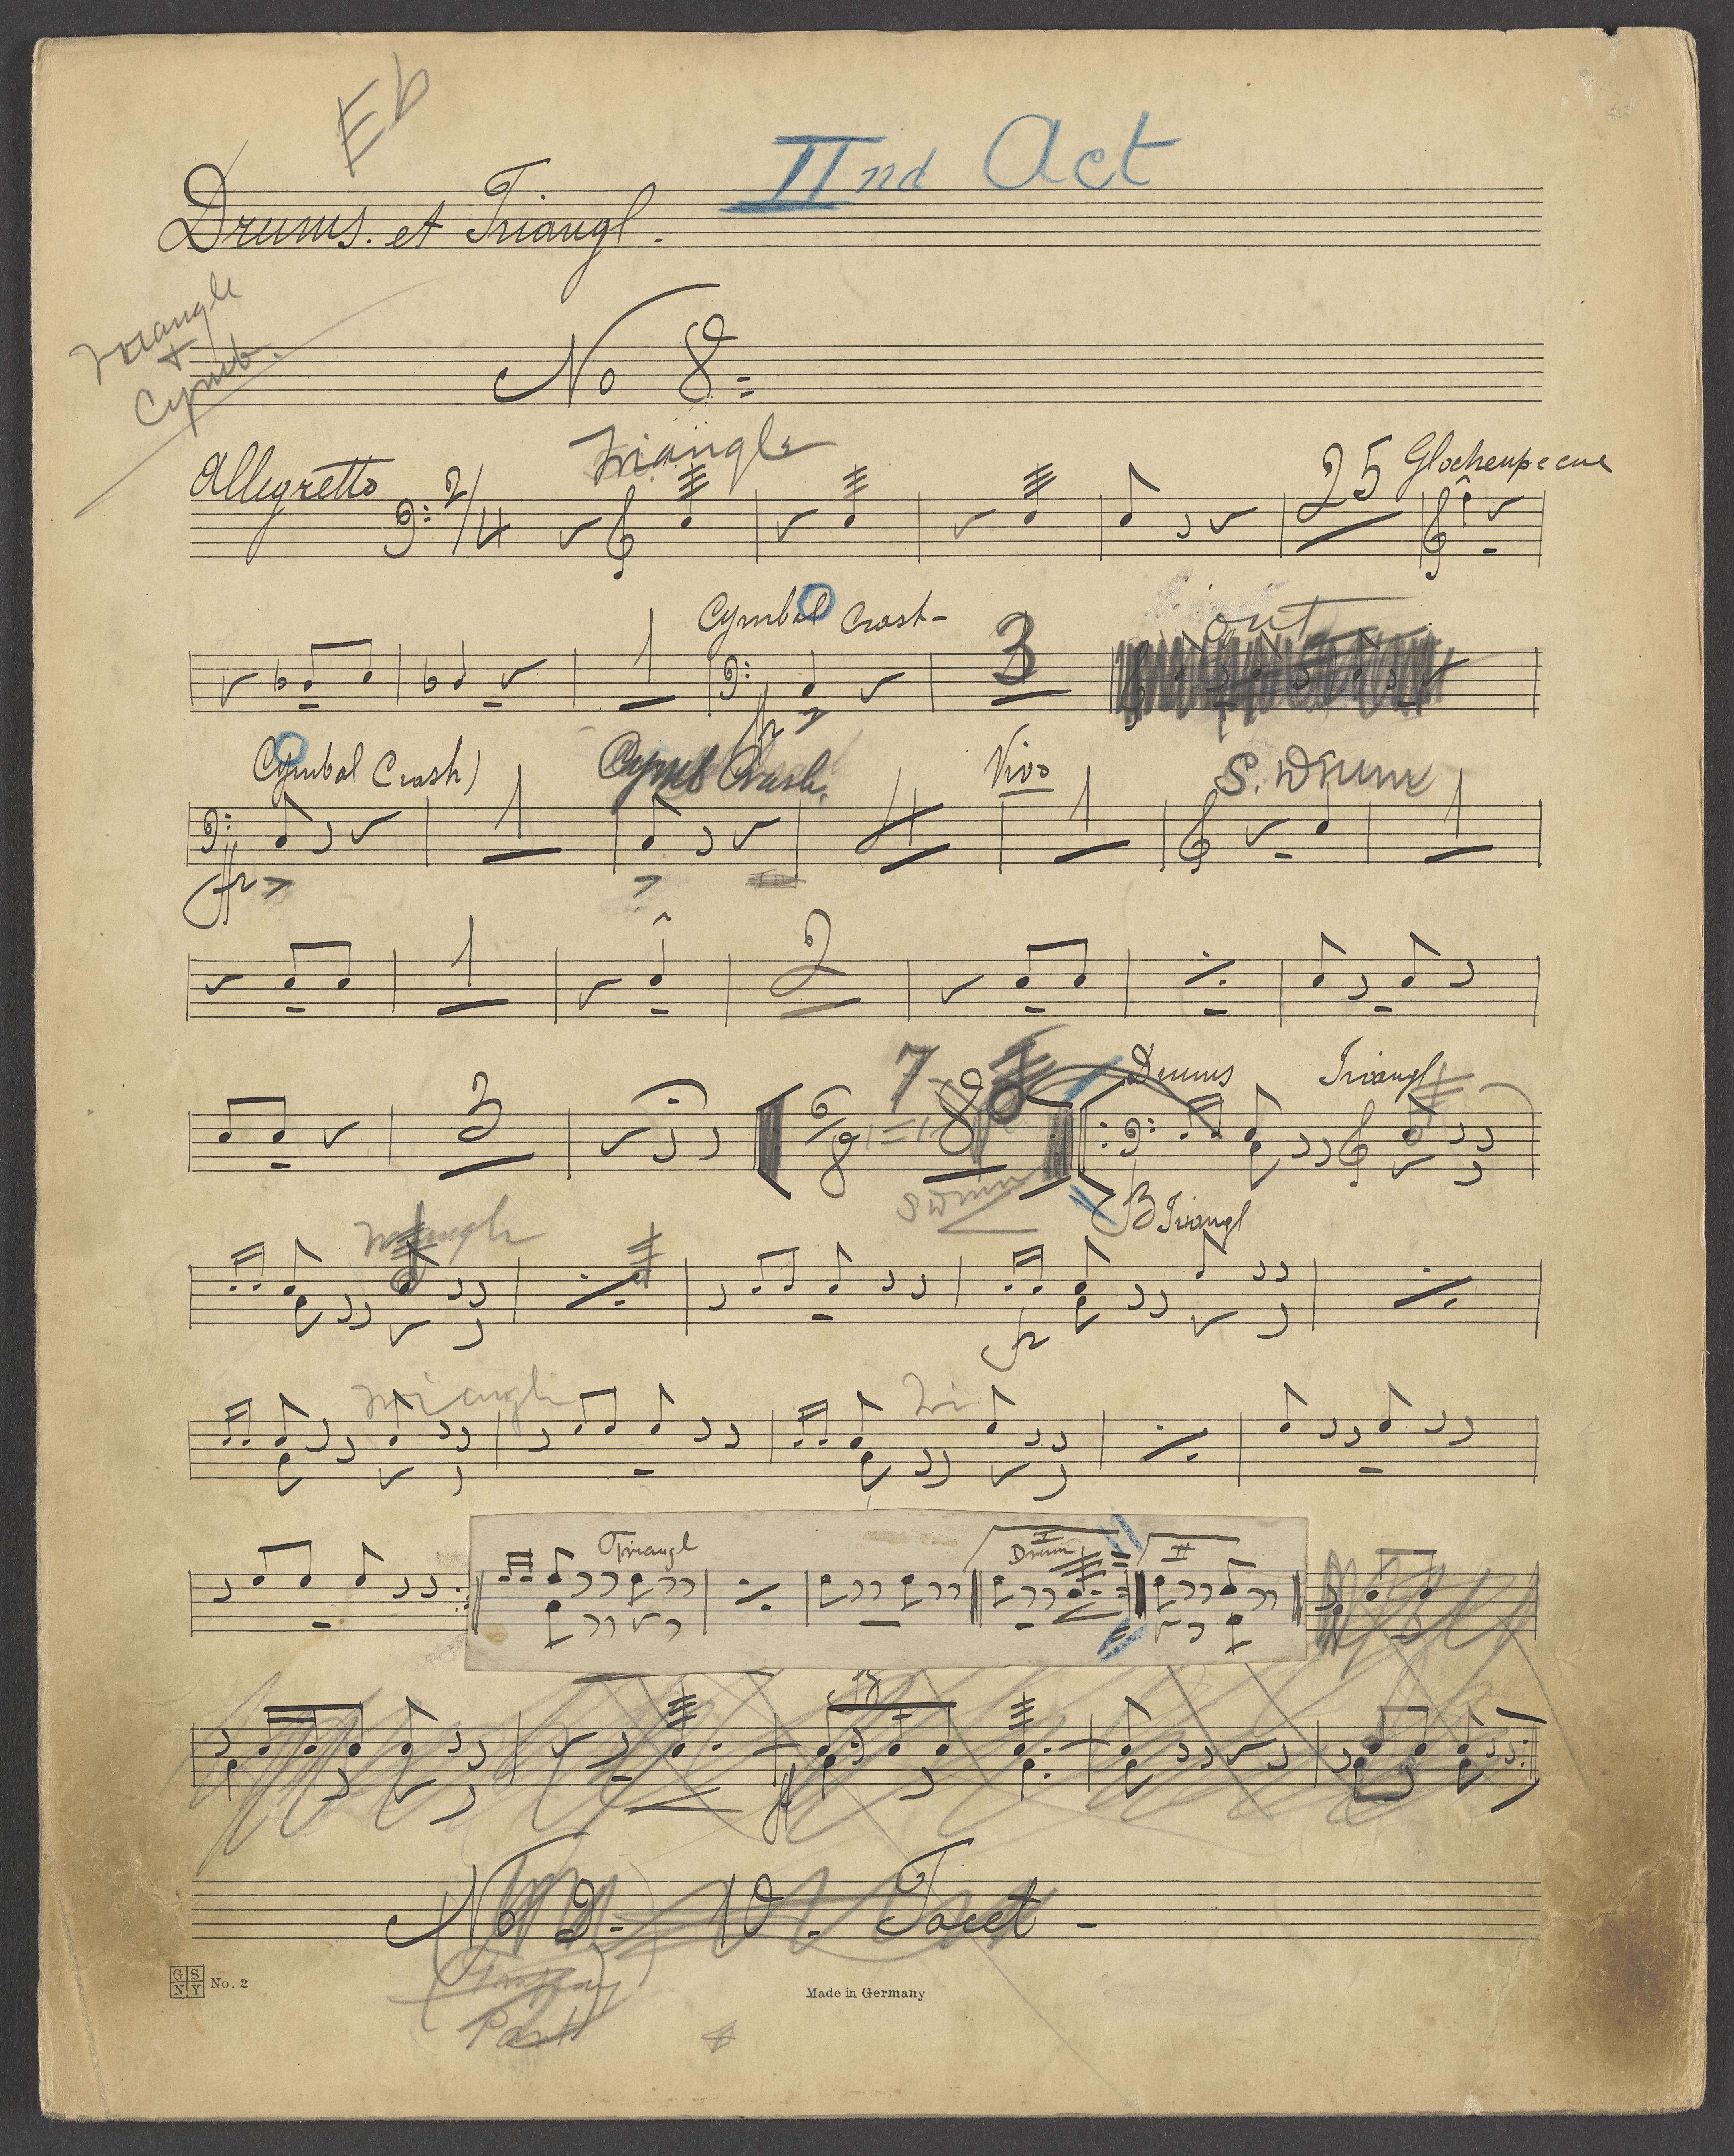 Eb
IInd Act
Drums. et Triangl.
Triangle
+
Cymb.
No 8
Triangle
Allegretto 2/4 25
Cymbal Crash 3 out
1
Cymbal Crash) Cymb Crash. Vivo S. Drum
ff 1 4 1 1
1 2
7 Drums Triangl
3 6/8 8
S Drum B Triangl
Triangle
Triangle Tri
Triangl I Drum II
ff
No 9. 10. Tacet
Part
GSNY No. 2 Made in Germany